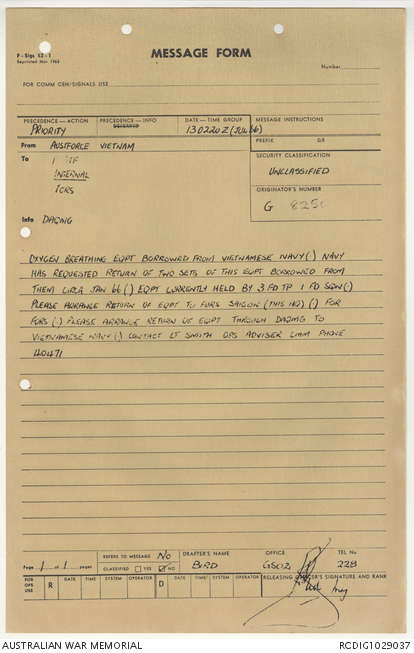 F-Sigs 62-1
Reprinted Nov 1965
MESSAGE FORM
Number
FOR COMM CEN/SIGNALS USE
PRECEDENCE—ACTION
PRIORITY
PRECEDENCE—INFO
DEFERRED
DATE—TIME GROUP
130220Z (JUL 66)
MESSAGE INSTRUCTIONS
PREFIX GR
From AUSTFORCE VIETNAM
To 1 TF
INTERNAL
FORS
SECURITY CLASSIFICATION
UNCLASSIFIED
ORIGINATOR'S NUMBER
G 8250
Info DAQMG
OXYGEN BREATHING EQPT BORROWED FROM VIETNAMESE NAVY (.) NAVY
HAS REQUESTED RETURN OF TWO SETS OF THIS EQPT BORROWED FROM
THEM CIRCA JAN 66 (.) EQPT CURRENTLY HELD BY 3 FD TP 1 FD SQN (.)
PLEASE ARRANGE RETURN OF EQPT TO FORS SAIGON (THIS HQ) (.) FOR
FORS (.) PLEASE ARRANGE RETURN OF EQPT THROUGH DAQMG TO
VIETNAMESE NAVY (.) CONTACT LT SMITH OPS ADVISER PHONE
40471
Page 1 of 1 pages
REFERS TO MESSAGE No
CLASSIFIED YES NO
DRAFTER'S NAME
BIRD
OFFICE
GSO2
TEL No
228
FOR OPS USE R DATE TIME SYSTEM OPERATOR D DATE TIME SYSTEM OPERATOR RELEASING OFFICER'S SIGNATURE AND RANK
AUSTRALIAN WAR MEMORIAL
RCDIG1029037